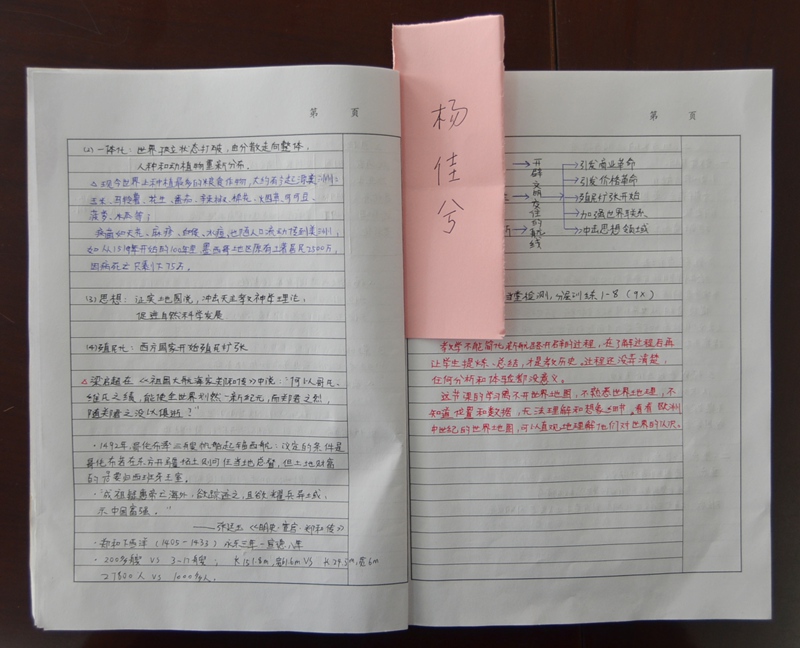 第 頁
(2) 一体化：世界孤立状态打破，由分散走向整体，
人种和动植物重新分布。
△现今世界上种植最多的粮食作物，大约有今起源美洲：
玉米、马铃薯、花生、番茄、辣椒、棉花、烟草、可可豆、
菠萝、水瓜等；
疾病如天花、麻疹、水痘，也随人口流动传到美洲，
如从1519年开始的100年里墨西哥地区原有土著居民2500万，
因病死亡只剩下75万。
(3) 思想：证实地圆说，冲击天主教神学理论，
促进自然科学发展
(4) 殖民化：西方国家开始殖民扩张
△梁启超在《祖国大航海家郑和传》中说："何以哥氏、
维氏之绩，能使全世界划然开一新纪元，而郑君之烈，
随郑君之没以俱逝？"
·1492年，哥伦布率三艘帆船起锚西航；议定的条件是
哥伦布若在东方开疆拓土则可任当地总督，但土地财富
的 要归西班牙王室。
·"成祖疑惠帝亡海外，欲踪迹之，且欲耀兵异域，
示中国富强。"
——张廷玉《明史·宦官·郑和传》
·郑和下西洋（1405-1433）永乐三年-宣德八年
·200多艘 VS 3-17艘； 长151.8m，宽61.6m VS 长29.5m，宽6m
27800人 VS 1000多人。
杨佳兮
第 頁
开辟交往的航线
引发商业革命
引发价格革命
殖民扩张开始
加强世界联系
冲击思想领域
堂检测，分层训练1-8（9×）
教学不能简化新航路开辟的过程，在了解过程后再
让学生提炼、总结，才是教历史。过程还没弄清楚，
任何分析和体验都没意义。
这节课的学习离不开世界地图，不熟悉世界地理，不
知道位置和数据，无法理解和想象细节。看看欧洲
中世纪的世界地图，可以直观地理解他们对世界的认识。